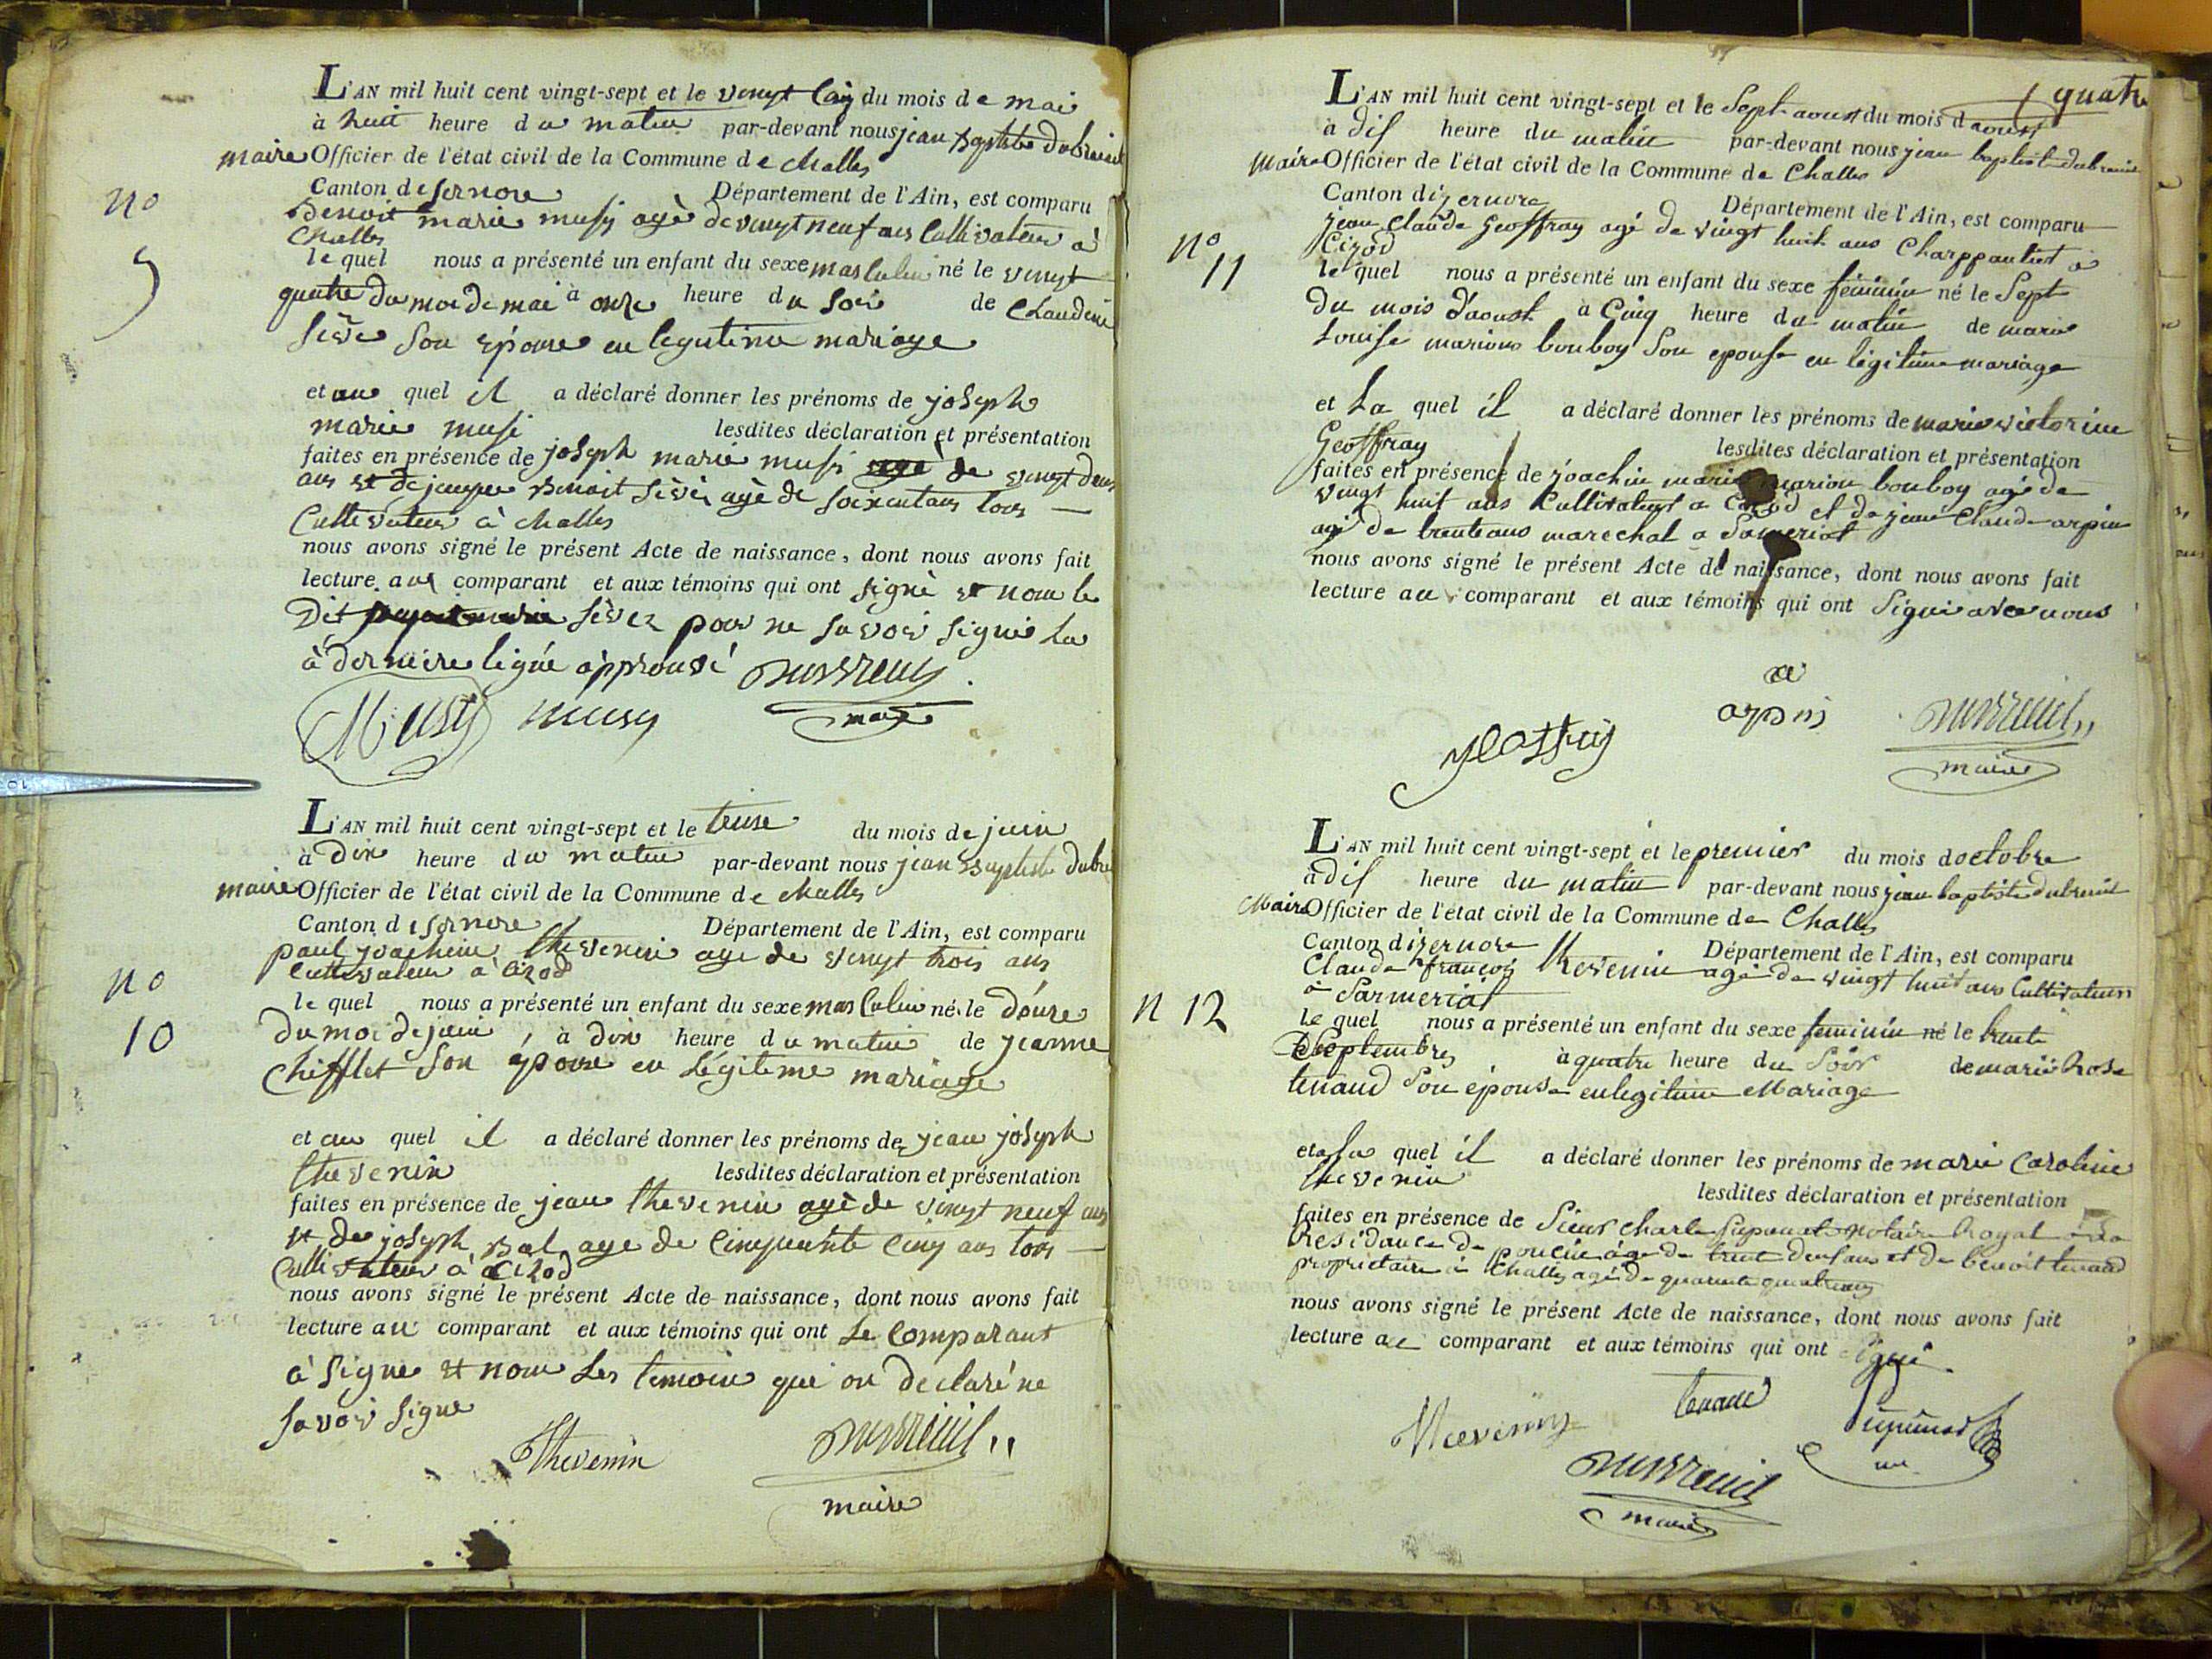 L'AN mil huit cent vingt-sept et le vingt cinq du mois de mai
à huit heure du matin par-devant nous jean baptiste dubreuil
maire Officier de l'état civil de la Commune de challes
Canton disernore Département de l'Ain, est comparu
no
9
Benoit marie musy agè de vingt neuf ans Cultivateur à
Challes
le quel nous a présenté un enfant du sexe masculin né le vingt
quatre du moi de mai à onze heure du soir de Claudine
sèvè son epouse en legitime mariage
et au quel il a déclaré donner les prénoms de joseph
marie musi lesdites déclaration et présentation
faites en présence de joseph marie musi agè de vingt deux
ans et de Benoit sèvè agè de soixentans tous
Cultivateur à challes
nous avons signé le présent Acte de naissance, dont nous avons fait
lecture aux comparant et aux témoins qui ont signè et nom le
Dit sèvèz pour ne savoir signè La
à dernière ligne àpprouvé Dubreuil
Musy musy maire
L'AN mil huit cent vingt-sept et le treise du mois de juin
à Dix heure du matin par-devant nous jean Baptiste dubre
maire Officier de l'état civil de la Commune de challes
Canton disernore Département de l'Ain, est comparu
paul joachim thevenin age de vingt trois ans
Cultivateur à Cizod
no
10
le quel nous a présenté un enfant du sexe masculin né le Douze
du moi de juin, à dix heure du matin de jeanne
Chifflet son epouse en Légitime mariage
et au quel il a déclaré donner les prénoms de jean joseph
thevenin lesdites déclaration et présentation
faites en présence de jean thevenin agè de vingt neuf ans
et de joseph Bal age de cinquante cinq ans tous
Cultivateur à Cizod
nous avons signé le présent Acte de naissance, dont nous avons fait
lecture au comparant et aux témoins qui ont Le Comparant
à signe et nom Les temoin qui on declaré ne
savoir signe
Thevenin Dubreuil
maire
quatre
L'AN mil huit cent vingt-sept et le Sept aoust du mois daoust
à dis heure du matin par-devant nous jean baptiste dubreuil
Maire Officier de l'état civil de la Commune de Challes
Canton dizernore Département de l'Ain, est comparu
jean Claude Geoffray agé de vingt huit ans Charppantier à
Cizod
no
11
le quel nous a présenté un enfant du sexe féminin né le Sept
du mois d'aoust à Cinq heure du matin de marie
Louise marion bouboy Son epouse en légitime mariage
et La quel il a déclaré donner les prénoms de marie victorine
Geoffray lesdites déclaration et présentation
faites en présence de joachin marie marion bouboy agé de
vingt huit ans Cultivateur a Cizod et de jean Claude arpin
agé de trente ans marechal a Sarmeriat
nous avons signé le présent Acte de naissance, dont nous avons fait
lecture au comparant et aux témoins qui ont Signé avec nous
arpin Dubreuil
maire
L'AN mil huit cent vingt-sept et le premier du mois doctobre
à dis heure du matin par-devant nous jean baptiste dubreuil
Maire Officier de l'état civil de la Commune de Challes
Canton dizernore Département de l'Ain, est comparu
Claude françois thevenin agé de vingt huit ans Cultivateur
à Sarmeriat
n 12
le quel nous a présenté un enfant du sexe feminin né le trente
Septembre à quatre heure du Soir de marie Rose
tenand Son épouse en legitime Mariage
et a La quel il a déclaré donner les prénoms de marie Caroline
thevenin lesdites déclaration et présentation
faites en présence de Sieur Charle notaire Royal
Residance de poncin âgé de trent deux ans et de benoit tenand
proprietaire à Challes agé de quarente quatre ans
nous avons signé le présent Acte de naissance, dont nous avons fait
lecture au comparant et aux témoins qui ont signé
Thevenin tenand
Dubreuil
maire